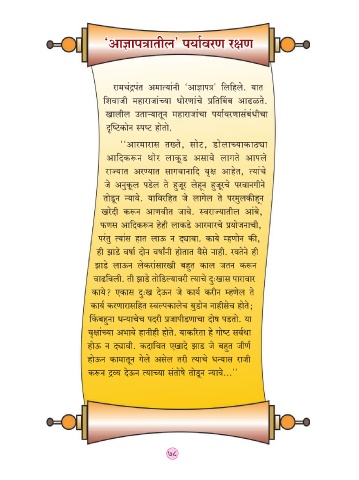 ‘आज्ञापत्रातील’ पर्यावरण रक्षण
रामचंद्रपंत अमात्यांनी ‘आज्ञापत्र’ लिहिले. यात
शिवाजी महाराजांच्या धोरणांचे प्रतिबिंब आढळते.
खालील उताऱ्यातून महाराजांचा पर्यावरणासंबंधीचा
दृष्टिकोन स्पष्ट होतो.
‘‘आरमारास तख्ते, सोट, डोलाच्याकाठ्या
आदिकरून थोर लाकूड असावे लागते आपले
राज्यात अरण्यात सागवानादि वृक्ष आहेत, त्यांचे
जे अनुकूल पडेल ते हुजूर लेहून हुजूरचे परवानगीने
तोडून न्यावे. याविरहित जे लागेल ते परमुलकीहून
खरेदी करून आणवीत जावे. स्वराज्यातील आंबे,
फणस आदिकरून हेही लाकडे आरमारचे प्रयोजनाची,
परंतु त्यांस हात लाऊ न द्यावा. काये म्हणोन की,
ही झाडे वर्षा दोन वर्षांनी होतात यैसे नाही. रयतेने ही
झाडे लाऊन लेकरांसारखी बहुत काल जतन करून
वाढविली. ती झाडे तोडिल्यावरी त्याचे दुःखास पारावार
काये? एकास दुःख देऊन जे कार्य करीन म्हणेल ते
कार्य करणारासहित स्वल्पकालेच बुडोन नाहीसेच होते;
किंबहुना धन्याचेच पदरी प्रजापीडणाचा दोष पडतो. या
वृक्षांच्या अभावे हानीही होते. याकरिता हे गोष्ट सर्वथा
होऊ न द्यावी. कदाचित एखादे झाड जे बहुत जीर्ण
होऊन कामातून गेले असेल तरी त्याचे धन्यास राजी
करून द्रव्य देऊन त्याच्या संतोषे तोडून न्यावे...’’
७८